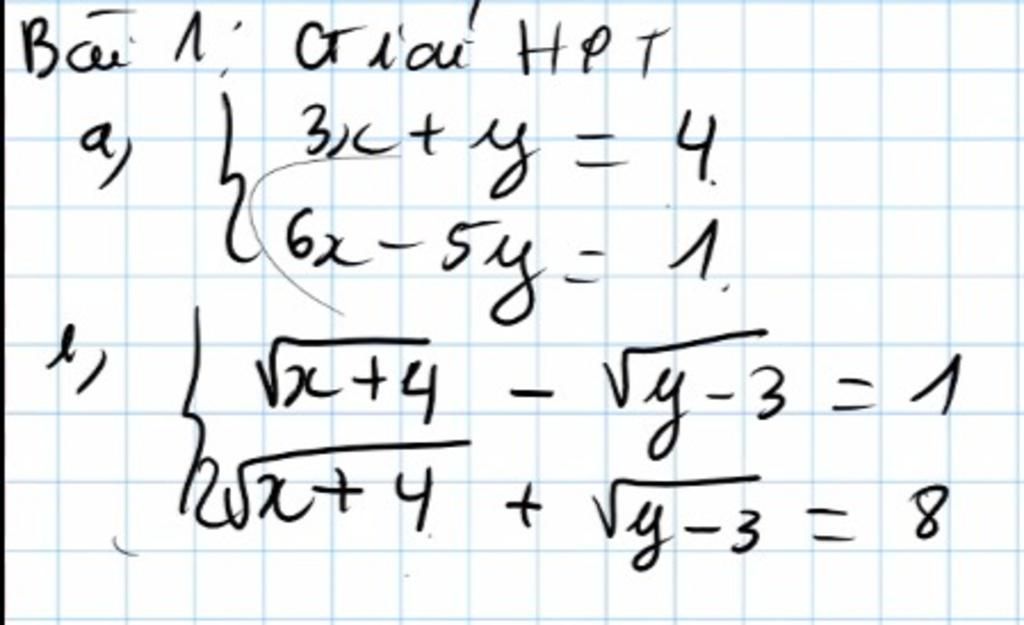 Bài 1: Giải HPT
a, { 3x + y = 4
6x - 5y = 1.
b, { √(x+4) - √(y-3) = 1
2√(x+4) + √(y-3) = 8